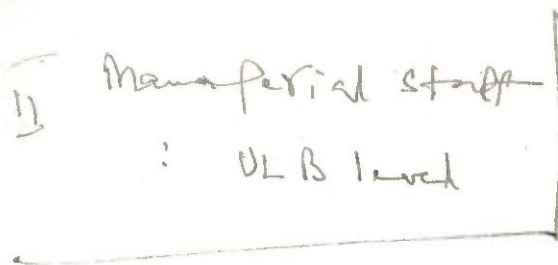 II Managerial staff
: ULB level